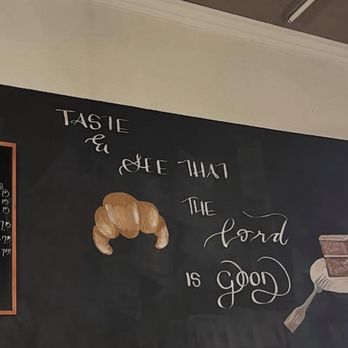 TASTE
& SEE THAT
THE
Lord
IS GOOD